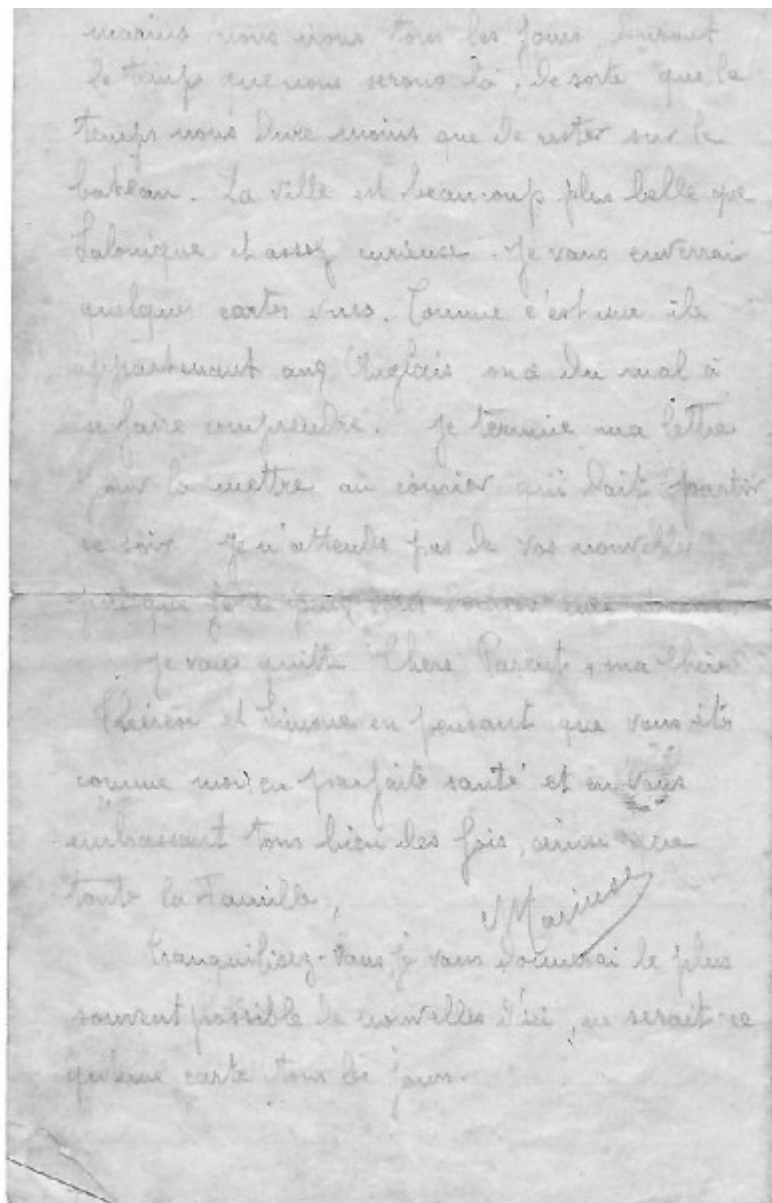 marins nous irons tous les jours durant
le temps que nous serons là, de sorte que le
temps nous dure moins que de rester sur le
bateau. La ville est beaucoup plus belle que
Salonique et assez curieuse. Je vous enverrai
quelques cartes vues. Comme c'est une île
appartenant aux Anglais on a du mal à
se faire comprendre. Je termine ma lettre
pour la mettre au courrier qui doit partir
ce soir. Je n'attends pas de vos nouvelles
puisque je ne puis vous donner une
Je vous quitte Chers Parents, ma chère
Thérèse et Simone en pensant que vous êtes
comme moi en parfaite santé et en vous
embrassant tous bien des fois, ainsi que
toute la Famille,
Marius
Tranquilisez-vous, je vous donnerai le plus
souvent possible de nouvelles d'ici, ne serait-ce
qu'une carte tous les jours.